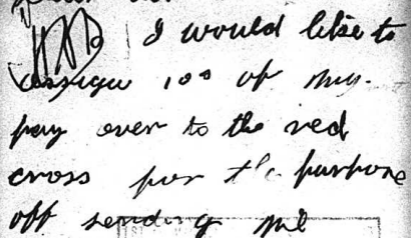 I would like to
assign 10⁰ of my
pay over to the red
cross for the purpose
off sending me